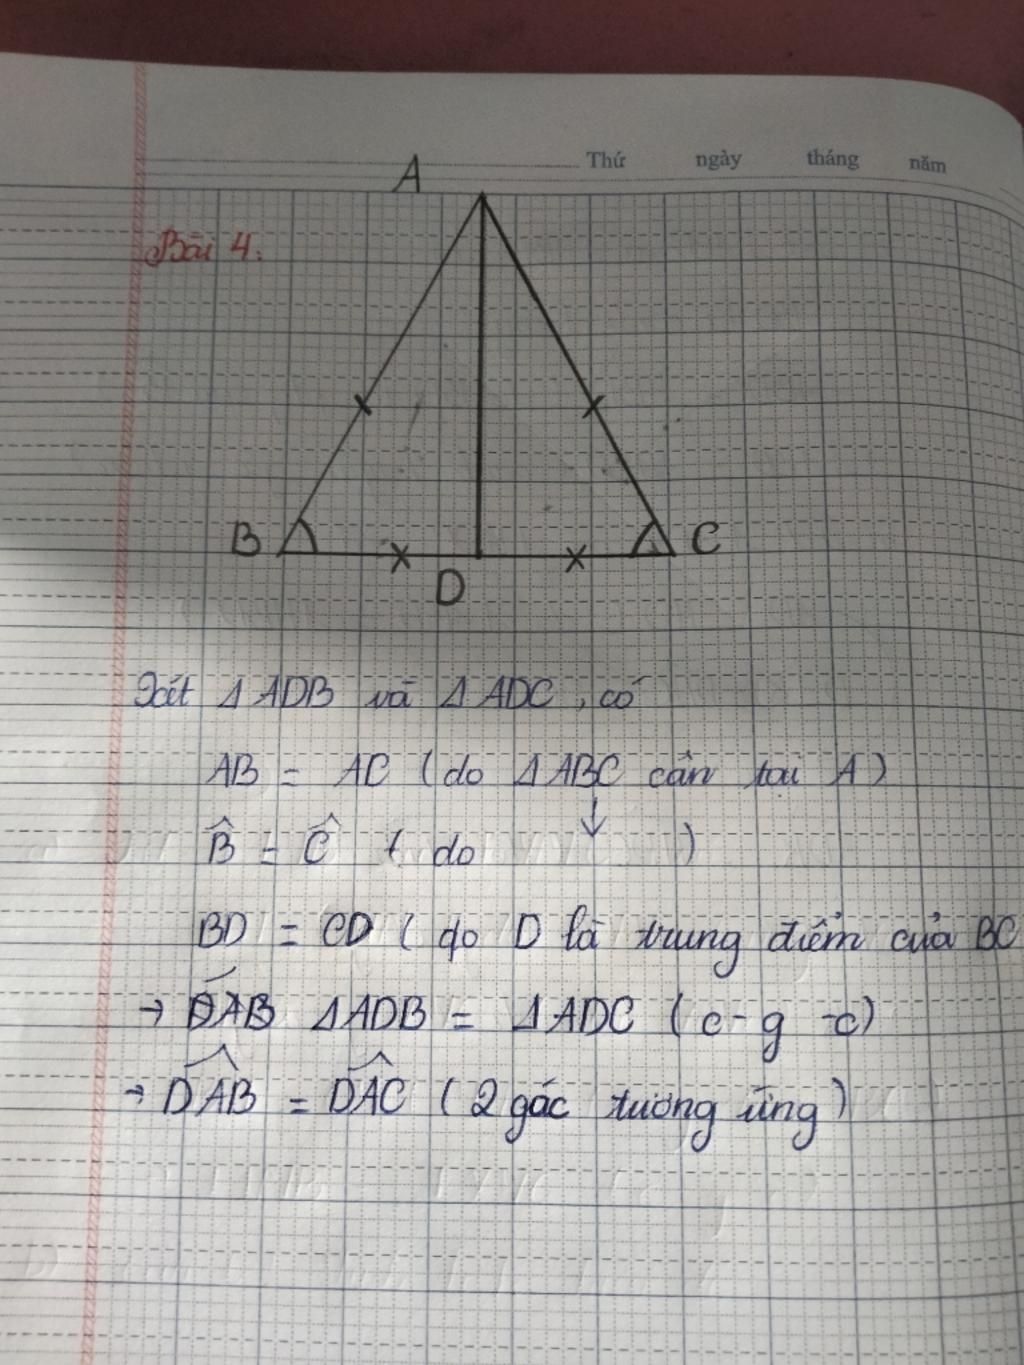 Thứ ngày tháng năm
A
Bài 4:
B C
D
Xét Δ ADB và Δ ADC, có
AB = AC (do ΔABC cân tại A)
B̂ = Ĉ (do ↓ )
BD = CD (do D là trung điểm của BC
→ ΔADB = ΔADC (c-g-c)
→ DAB = DAC (2 góc tương ứng)